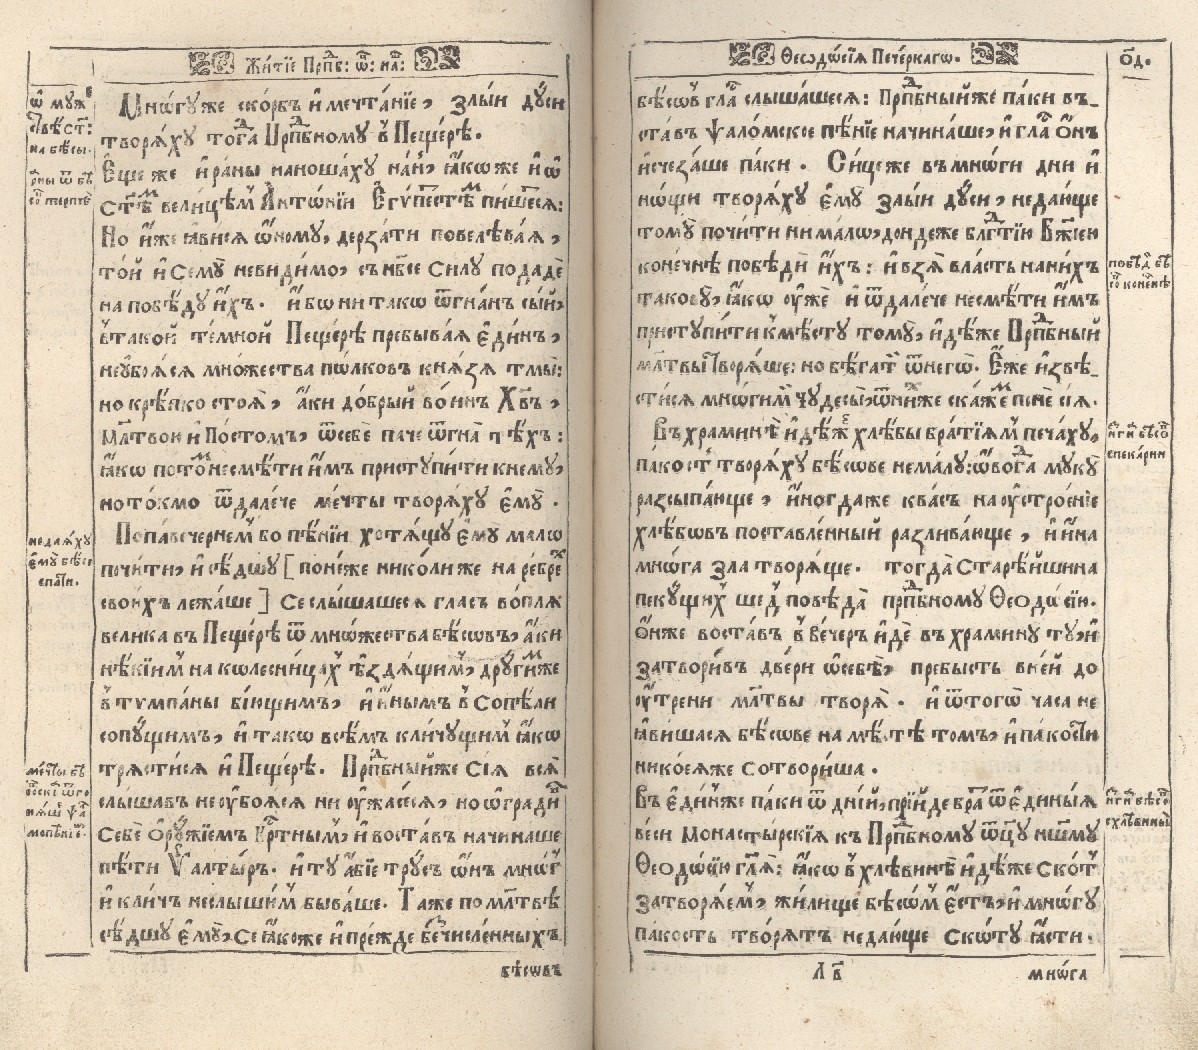 Жи́тїе Прпⷣб: ѿ: нⷲа:
ѿ муже
стве єст:
на бѣсы.
Мнѡ́гу же ско́рбь и҆ мечта́нїе, злы́и ду́си
творѧ́ху тогдⷶа Прпⷣбному в҆ Пеще́рѣ.
Е҆ще же и҆ ра́ны наноша́ху на́нь, ꙗ҆́коже и҆ ѡ
Ст҃ѣмъ вели́цѣмъ А҆нто́нїи Е҆гу́петстѣмъ пи́шесѧ:
Но и҆́же ꙗ҆ви́сѧ ѻ҆́ному, дерза́ти повелѣва́ѧ,
то́й и҆ Сему̀ неви́димо, съ нб҃сѐ Си́лу подадѐ
на побѣ́ду и҆́хъ. и҆́бо ни та́кѡ ѿгна́нъ сы́й,
в҆ тако́й те́мной Пеще́рѣ пребыва́ѧ є҆ди́нъ,
неубоѧ́сѧ мно́жества полко́въ кнѧ́зѧ тмы̀:
но крѣ́пко стоѧ̀, а҆́ки до́брый во́инъ Хв҃ъ,
Мл҃твою и҆ По́стомъ, ѿ себѐ па́че ѿгна̀ тѣ́хъ:
ꙗ҆́кѡ пото́мъ несмѣ́ти и҆̀мъ приступи́ти к нему̀,
но то́кмо ѿдале́че мечты̀ творѧ́ху є҆му̀.
По павече́рнемъ бо пѣ́нїи хотѧ́щу є҆му̀ ма́лѡ
почи́ти, и҆ сѣ́дшу [ поне́же николи́же на ре́брехъ
свои́хъ лежа́ше ] Се слы́шашесѧ гла́съ во́плѧ
вели́ка въ Пеще́рѣ ѿ мно́жества бѣсо́въ, а҆́ки
нѣ́кїимъ на колесни́цахъ ѣ҆́здѧщимъ, други́мже
в҆ тумпа́ны бїю́щимъ, и҆ и҆́нымъ в҆ Сопѣ́ли
сопу́щимъ, и҆ та́кѡ всѣ́мъ кли́чущимъ ꙗ҆́кѡ
трѧ́стисѧ и҆ Пеще́рѣ. Прпⷣбный же Сїѧ̀ всѧ̀
слы́шавъ неубоѧ́сѧ ни ужасе́сѧ, но ѡ҆гради́въ
Себѐ Ѻ҆ру́жїемъ Кртⷭнымъ, и҆ воста́въ начина́ше
пѣ́ти Ѱалты́рь. и҆ ту̀ а҆́бїе тру́съ ѻ҆́нъ мно́гъ
и҆ кли́чъ неслы́шимъ быва́ше. Та́же по мл҃твѣ
сѣ́дшу є҆му̀, Се ꙗ҆́коже и҆ пре́жде безчи́сленныхъ
не даѧ́ху
є҆му̀ бѣсо
спа́ти.
бѣсо́въ
Ѳеодо́сїѧ Пече́рскагѡ.
о҃д.
бѣсо́въ гла́съ слы́шашесѧ: Прпⷣбный же па́ки въ-
ста́въ Ѱало́мское пѣ́нїе начина́ше, и҆ гла́съ ѻ҆́нъ
и҆счеза́ше па́ки. Си́це же въ мнѡ́ги дни и҆
нѡ́щи творѧ́ху є҆му̀ злы́и ду́си, не даю́ще
тому̀ почи́ти ни ма́лѡ, до́ндеже блгⷣтїю Бж҃їею
коне́чнѣ побѣдѝ и҆́хъ: и҆ взѧ̀ вла́сть на ни́хъ
такову̀, ꙗ҆́кѡ ужѐ и҆ ѿдале́че несмѣ́ти и҆̀мъ
приступи́ти к҆ мѣ́сту тому̀, и҆дѣ́же Прпⷣбный
мл҃твы творѧ́ше: но бѣ́гати ѿ негѡ̀. Е҆́же и҆звѣ-
сти́сѧ мно́гими чудесы̀, ѿ ни́хже ска́жемъ понѐ сїѧ̀.
Въ хра́минѣ и҆дѣ́же хлѣ́бы бра́тїѧмъ печа́ху,
па́кость творѧ́ху бѣ́сове нема́лу: ѻ҆вогда̀ муку̀
разсыпа́юще, и҆ногда́же ква́съ на устрое́нїе
хлѣ́бовъ поста́вленный разлива́юще, и҆ и҆́на
мнѡ́га зла творѧ́ще. тогда̀ Старѣ́йшина
пеку́щихъ ше́дъ повѣ́да прпⷣбному Ѳеодо́сїю.
Ѻ҆́нже воста́въ в҆ ве́черъ и҆́де въ хра́мину ту̀, и҆
затвори́въ две́ри ѡ҆ себѣ̀, пребы́сть в не́й до
у́трени мл҃твы творѧ̀. и҆ ѿ тогѡ̀ часа не
ꙗ҆ви́шасѧ бѣ́сове на мѣ́стѣ то́мъ, и҆ па́кости
никоеѧ́же сотвори́ша.
Въ є҆ди́нже па́ки ѿ дні́й, прїи́де бра́тъ ѿ є҆ди́ныѧ
ве́си Монасты́рскїѧ къ Прпⷣбному ѿц҃у нш҃му
Ѳеодо́сїю гл҃ѧ: ꙗ҆́кѡ в҆ хлѣ́винѣ и҆дѣ́же Ско́тъ
затворѧ́емъ, жили́ще бѣсо́мъ є҆́стъ, и҆ мно́гу
па́кость творѧ́тъ не даю́ще Ско́ту ꙗ҆́сти.
побѣд бѣ
со коне́чнѣ
Л в҃
мнѡ́га